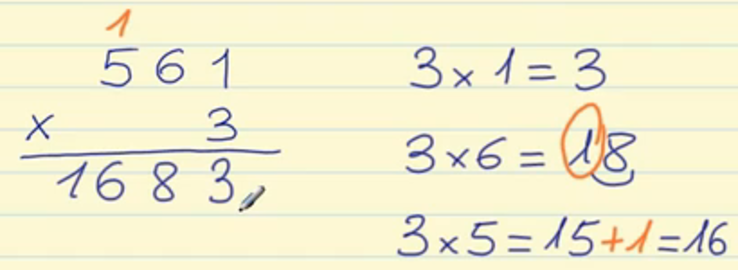 1
561
x 3
1683
3x1=3
3x6=18
3x5=15+1=16